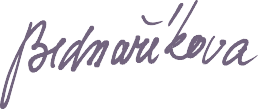 Bednaříkova